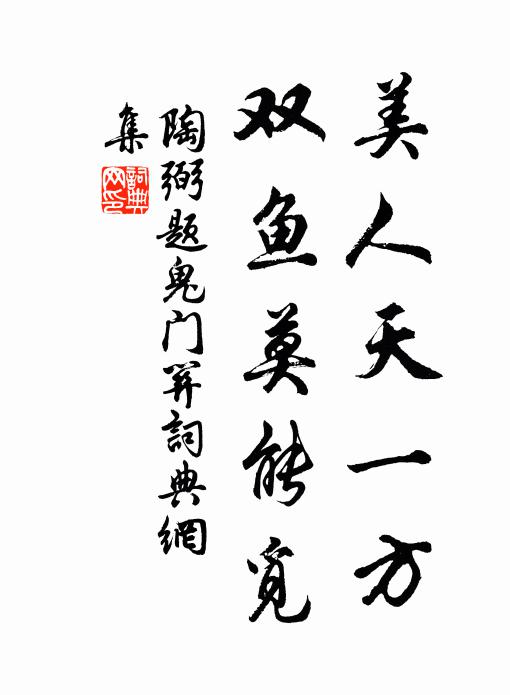 美人天一方
双鱼莫能觅
陶弼题鬼门关詞典網
集
詞典网印